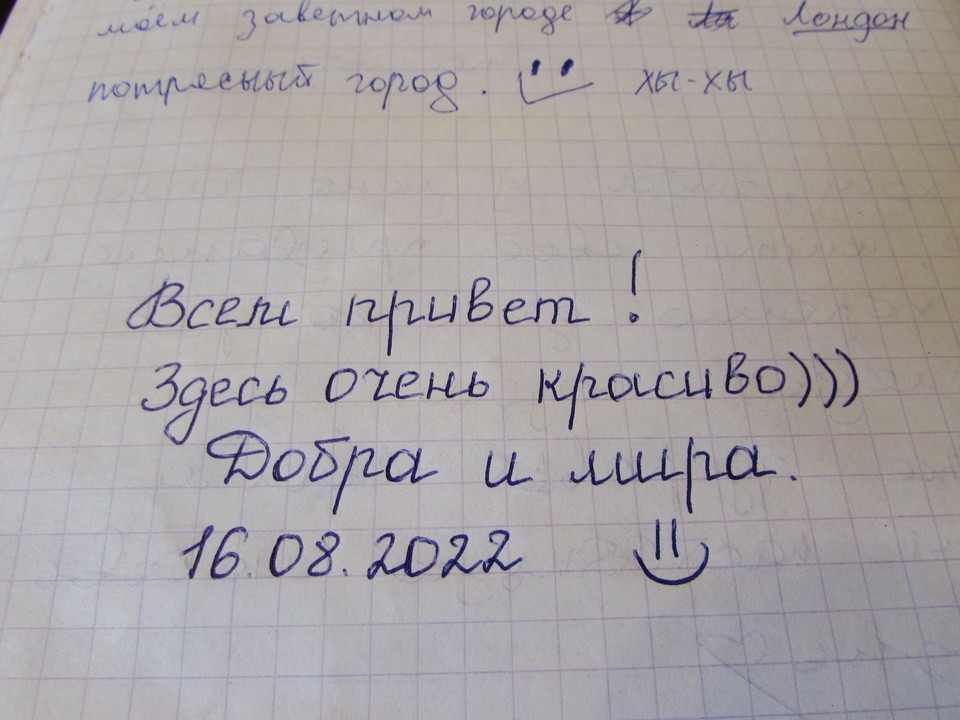 моём заветном городе Лондон
потрясный город. хы-хы
Всем привет!
Здесь очень красиво)))
Добра и мира.
16.08.2022